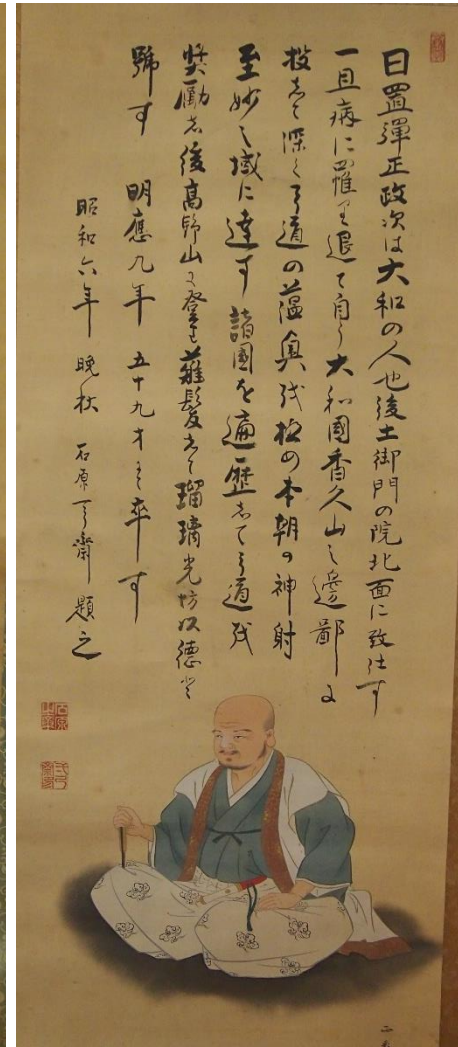 日置彈正政次は大和の人也後土御門の院北面に致仕す
一旦病に罹り退て自ら大和國香久山之邊鄙に
投して深く弓道の蘊奥を極め本朝の神射
至妙之域に達す諸國を遍歴して弓道を
奨勵し後高野山に登り薙髪して瑠璃光坊以徳と
號す 明應九年 五十九才にて卒す
昭和六年 晩秋 石原弓齋 題之